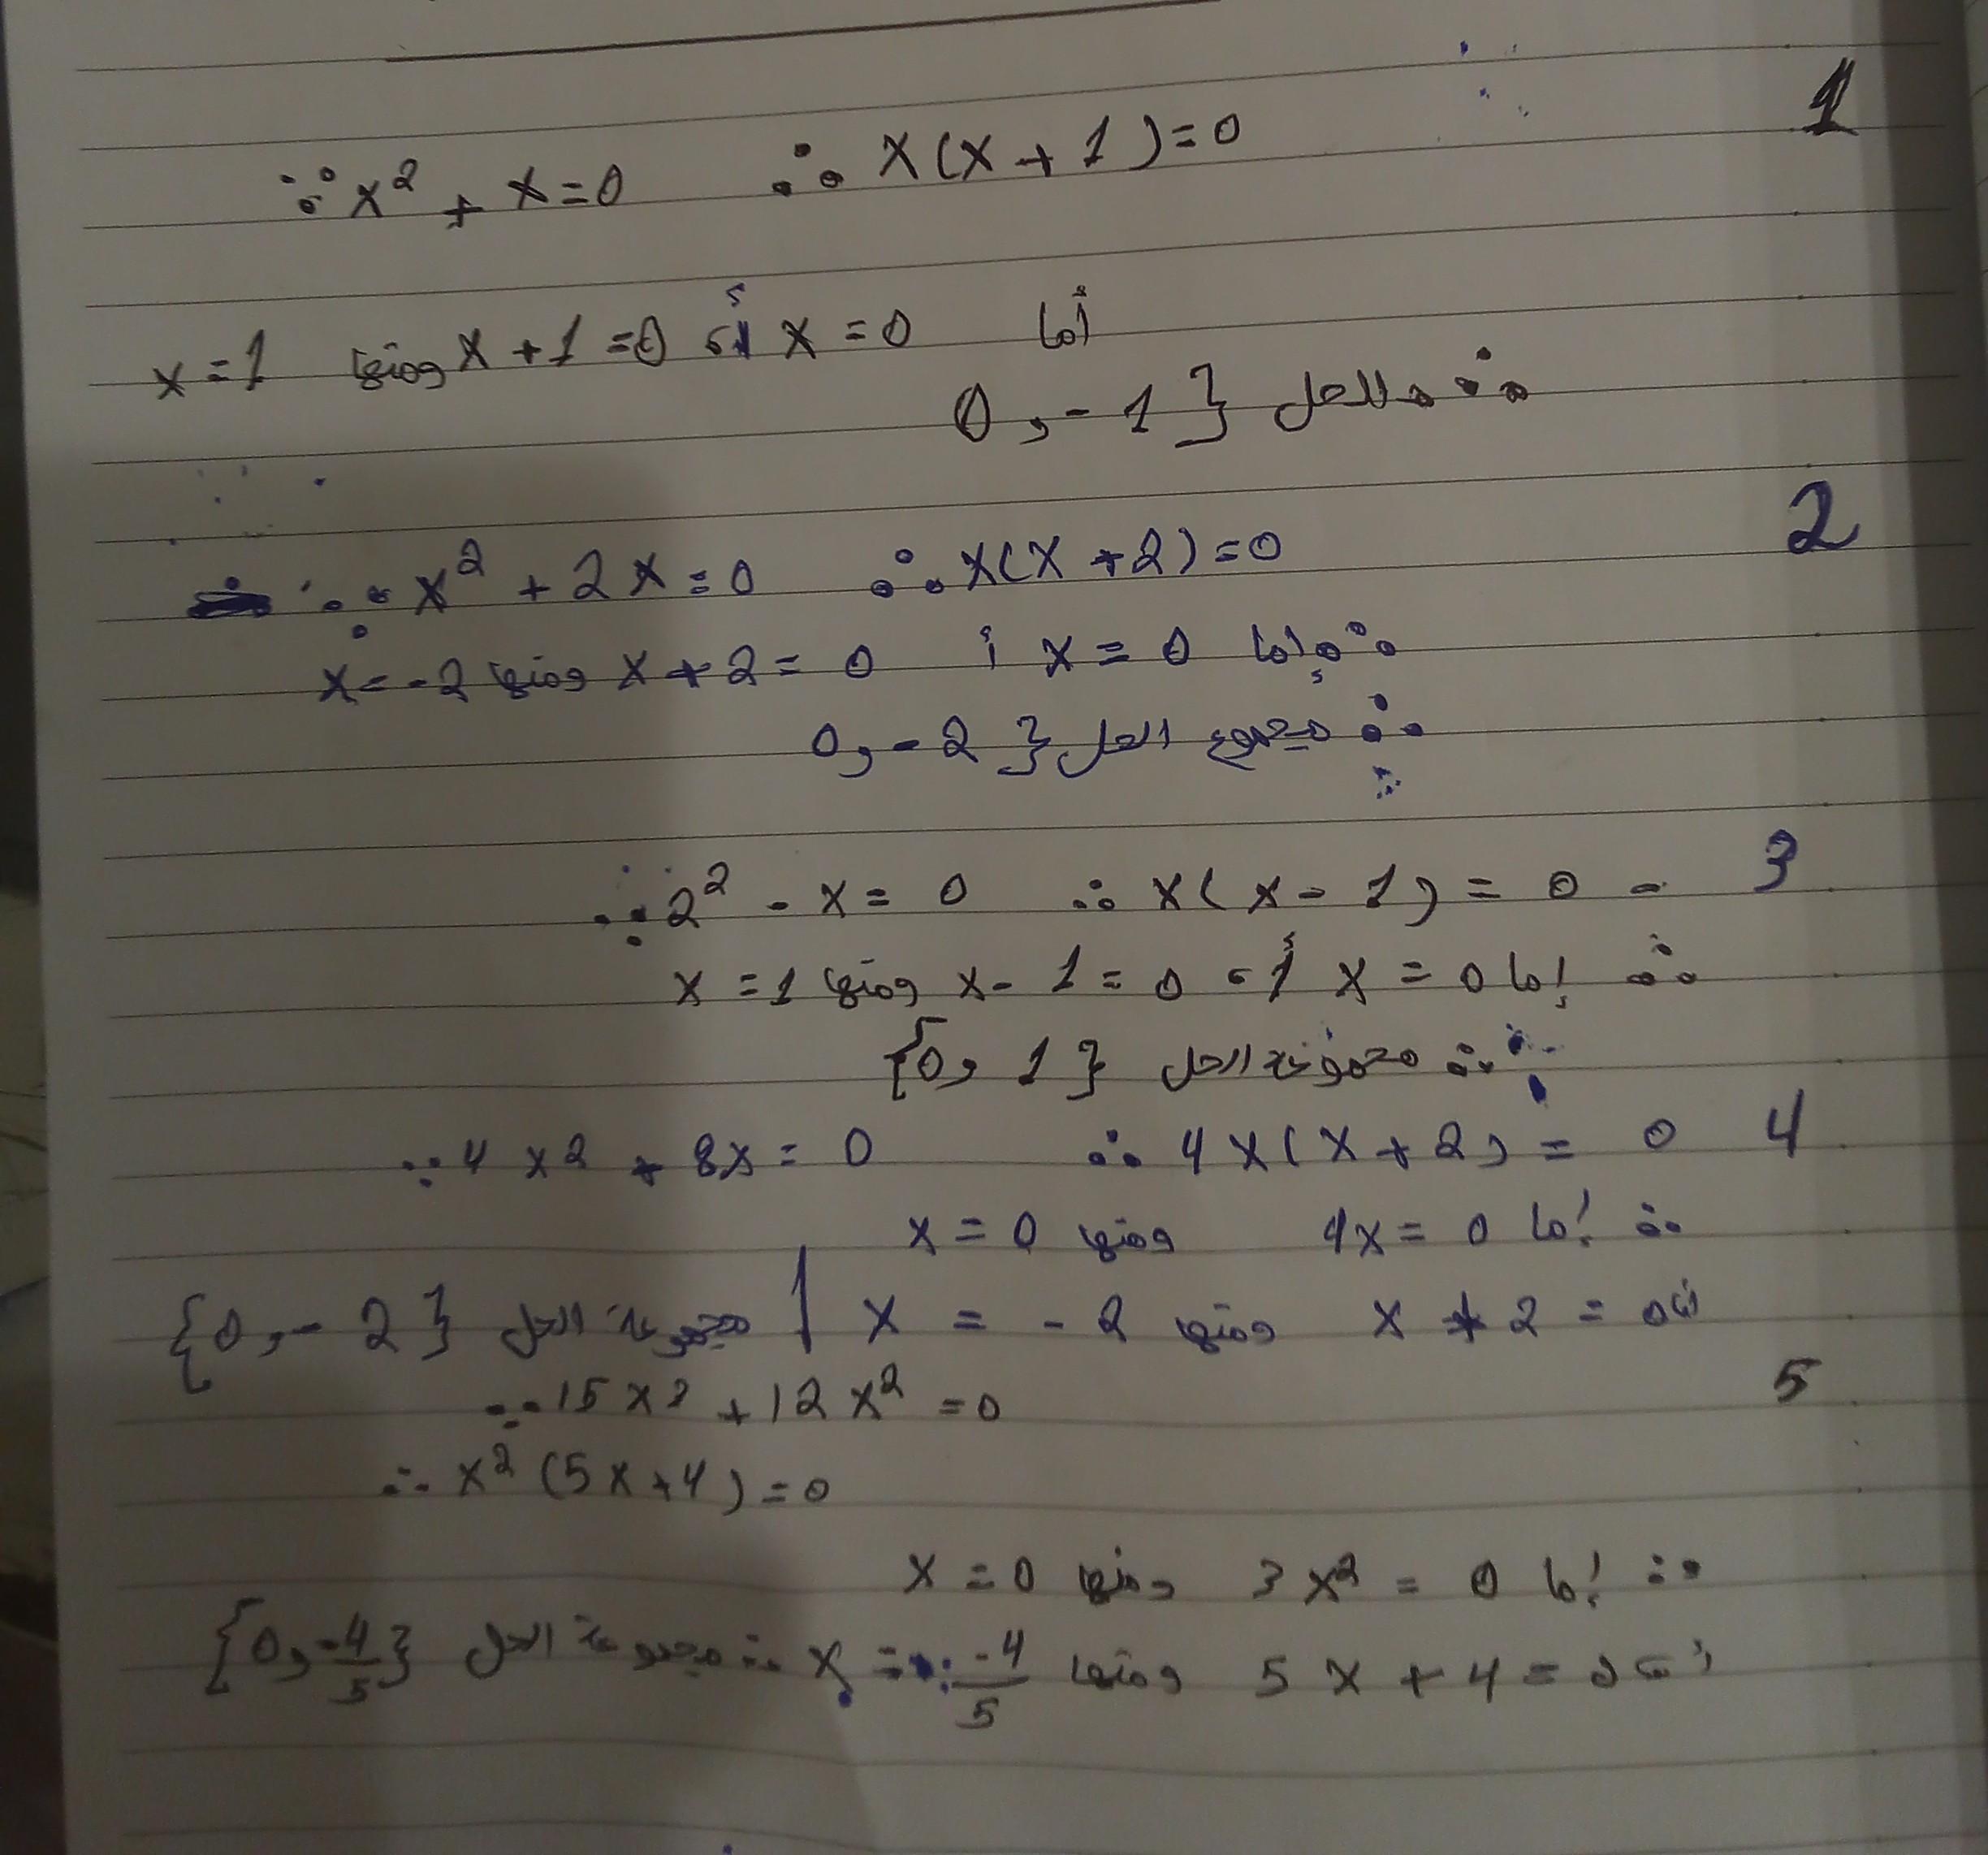 1
∵ x² + x = 0 ∴ x(x + 1) = 0
أما x = 0 أ، x + 1 = 0 ومنها x = 1
∴ الحل { 0, -1
2
∵ x² + 2x = 0 ∴ x(x + 2) = 0
∴ إما x = 0 أ x + 2 = 0 ومنها x = -2
∴ مجموع الحل { 0, -2
3
∵ 2² - x = 0 ∴ x(x - 1) = 0 -
∴ إما x = 0 أ، x - 1 = 0 ومنها x = 1
∴ مجموعة الحل {0, 1}
4
∵ 4x2 + 8x = 0 ∴ 4x(x + 2) = 0
∴ إما 4x = 0 ومنها x = 0
x + 2 = 0 ومنها x = -2 | مجموعة الحل {0, -2}
5
∵ 15x3 + 12x² = 0
∴ x² (5x + 4) = 0
∴ إما 3x² = 0 ومنها x = 0
5x + 4 = 0 ومنها x = -4/5 ∴ مجموعة الحل {0, -4/5}